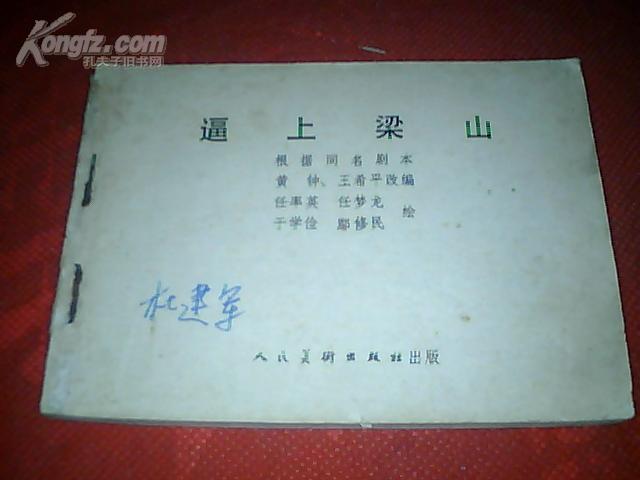 Kongfz.com
孔夫子旧书网
逼上梁山
根据同名剧本
黄钟、王希平改编
任率英 任梦龙
于学俭 鄢修民 绘
杜建军
人民美術出版社出版